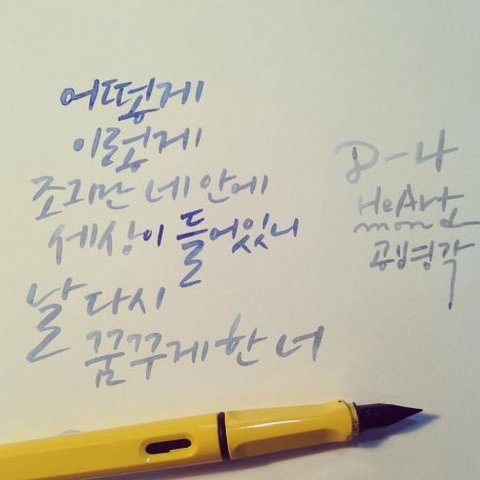 어떻게
이렇게
조그만 네 안에
세상이 들어있니
날 다시
꿈꾸게 한 너
D-4
HeArt
mond
공병각